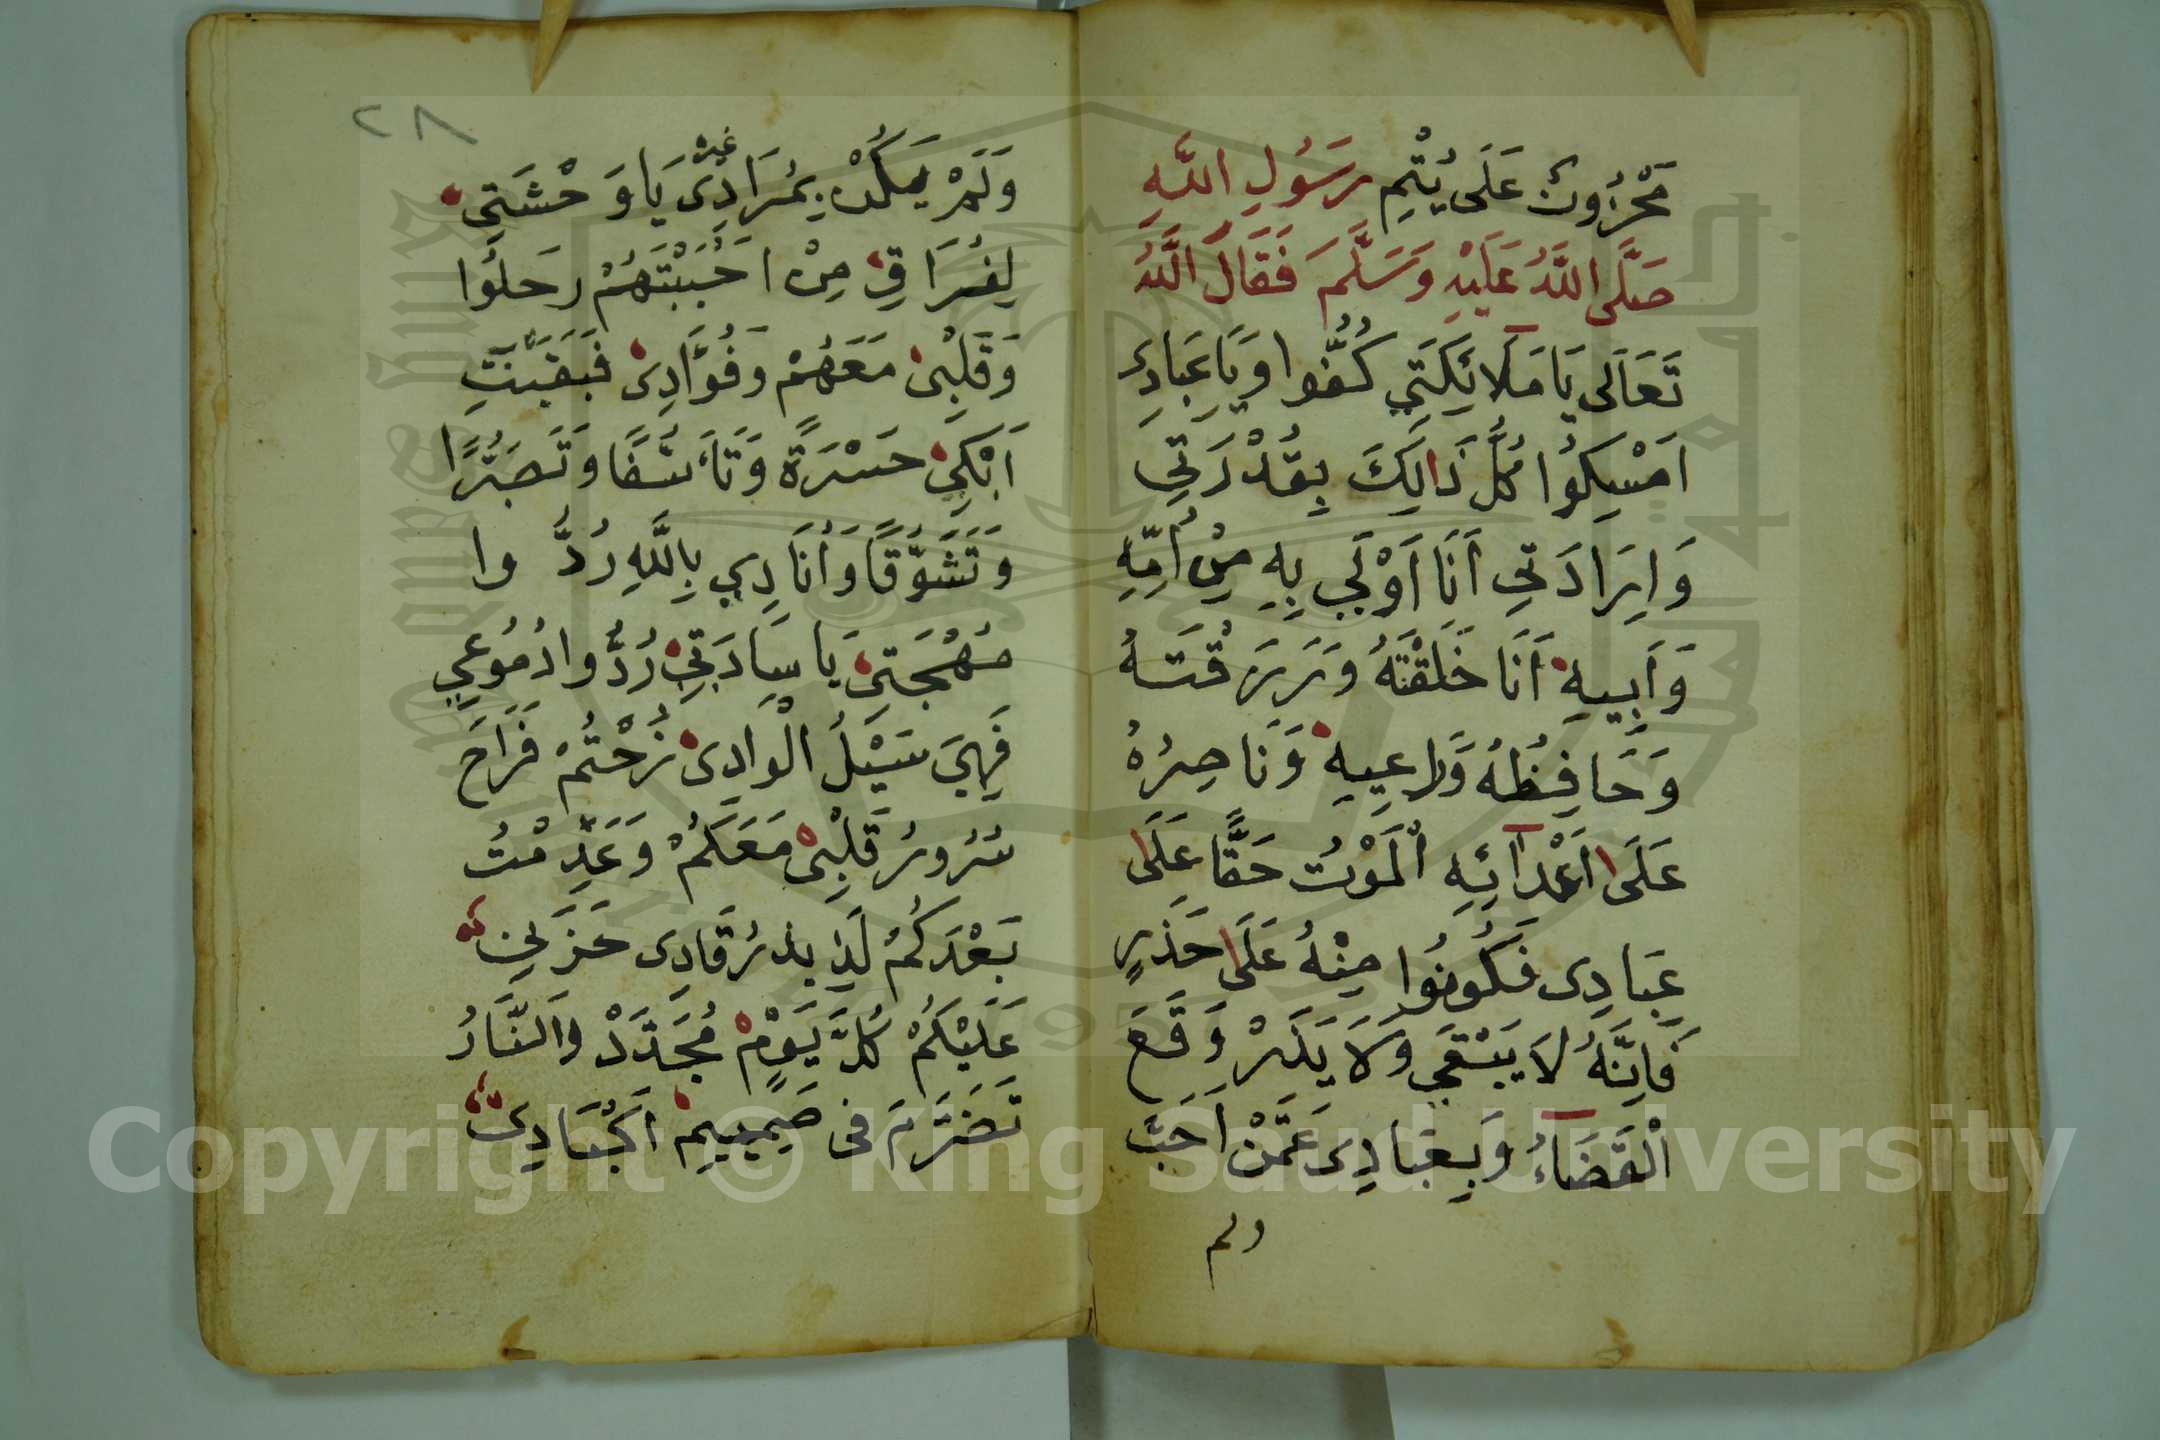 مَحْزُونٌ عَلَى يُتْمِ رَسُولِ اللَّهِ
صَلَّى اللَّهُ عَلَيْهِ وَسَلَّمَ فَقَالَ اللَّهُ
تَعَالَى يَا مَلَائِكَتِي كُفُّوا وَيَا عِبَادِي
امْسِكُوا كُلُّ ذَالِكَ بِقُدْرَتِي
وَإِرَادَتِي أَنَا أَوْلَى بِهِ مِنْ أُمِّهِ
وَأَبِيهِ أَنَا خَلَقْتَهُ وَرَزَقْتَهُ
وَحَافِظُهُ وَرَاعِيهِ وَنَاصِرُهُ
عَلَى اَعْدَآئِهِ الْمَوْتُ حَقًّا عَلَى
عِبَادِى فَكُونُوا مِنْهُ عَلَى حَذَرٍ
فَإِنَّهُ لَا يَبْقَي وَلَا يَذَرْ وَقَعَ
الْقَضَاءُ وَبِعِبَادِى عَمَّنْ اَحَبَّ
ولم
٢٨
وَلَمْ يَكُنْ بِمُرَادِى غير يَا وَحْشَتِي
لِفُرَاقِي مِنْ اَحْبَبْتَهُمْ رَحَلُوا
وَقَلْبِى مَعَهُمْ وَفُؤَادِى فَبَقَيْتِ
اَبْكِي حَسْرَةً وَتَأَسُّفًا وَتَصَبُّرًا
وَتَشَوُّقًا وَأُنَادِي بِاللَّهِ رُدُّوا
مُهْجَتِى يَا سَادَتِي رُدُّوا دُمُوعِي
فَهِيَ سَيْلُ الْوَادِى رُحْتُمْ فَرَاحَ
سُرُورُ قَلْبِى مَعَكُمْ وَعَدِمْتُ
بَعْدَكُمُ لَذِيذ رُقَادِى حَزَنِي
عَلَيْكُمْ كُلَّ يَوْمٍ مُجَدَّدْ وَالنَّارُ
تَضَرَّمَ فى صَمِيمِ اَكْبَادِى
Copyright © King Saud University